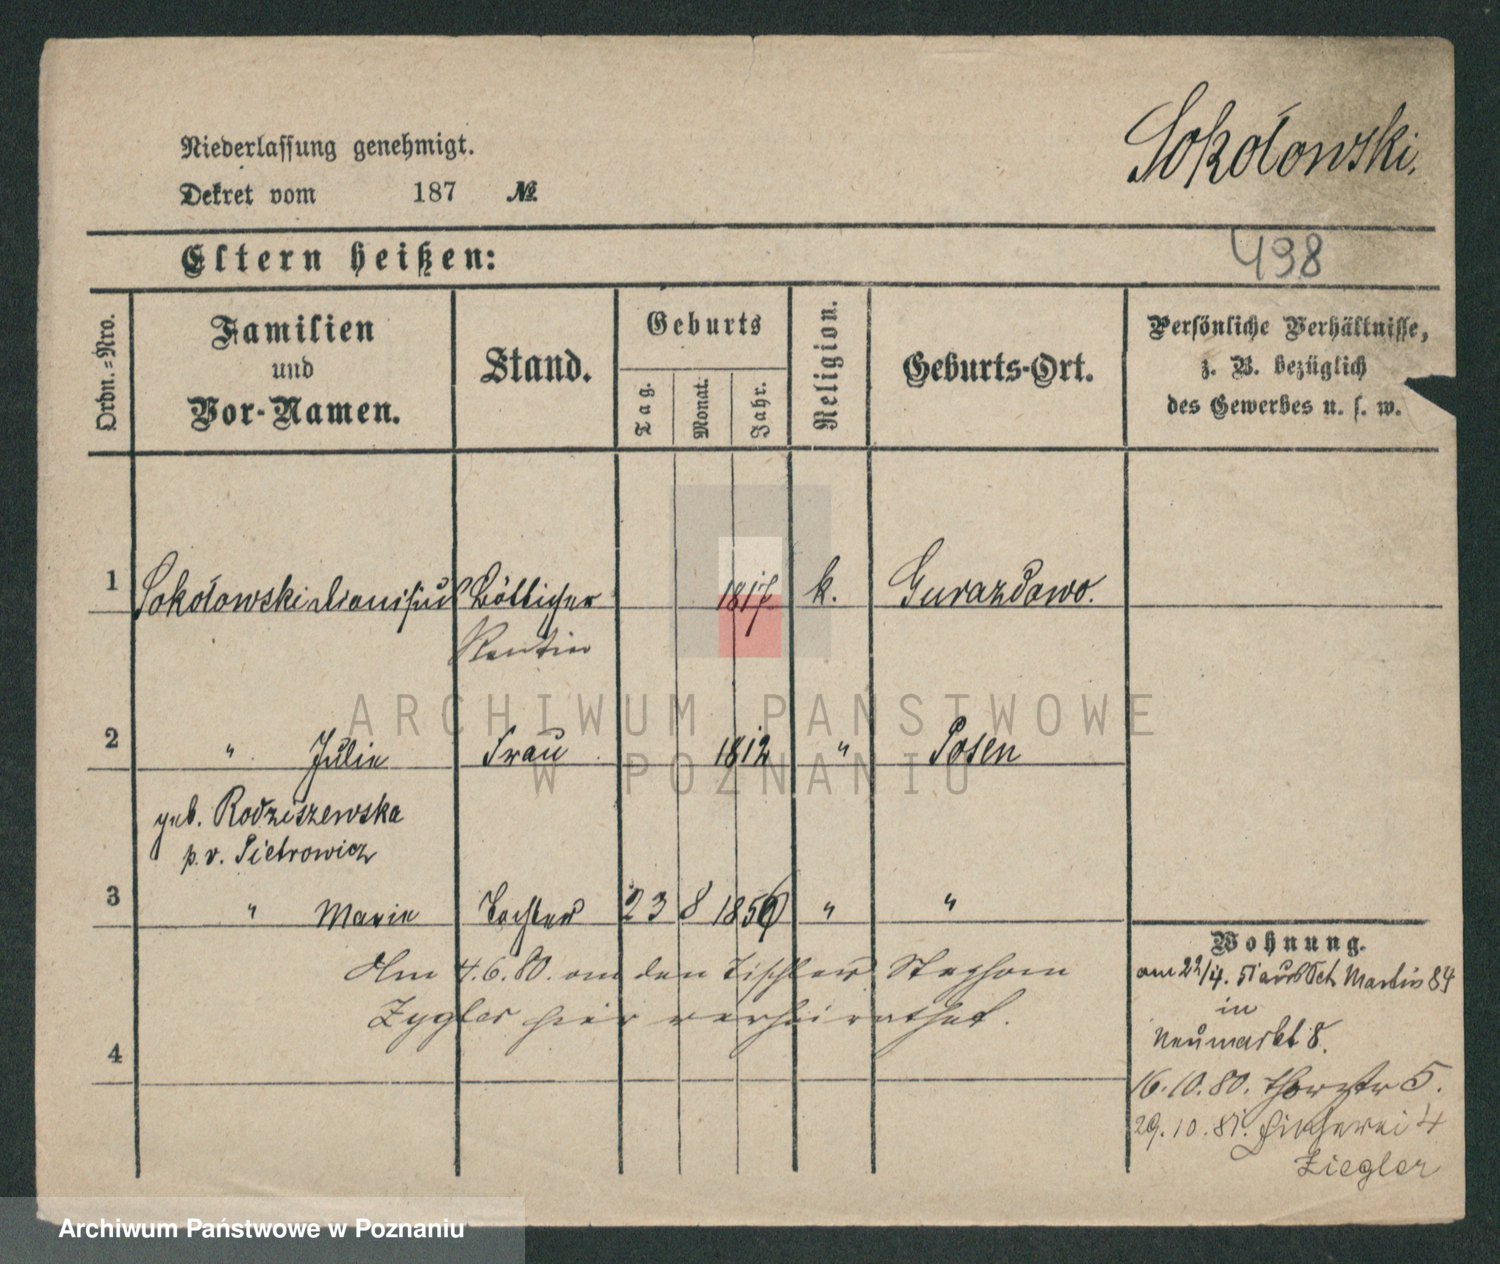 Sokołowski.
Niederlassung genehmigt.
Dekret vom 187 №
Eltern heißen:
498
Ordn.=Nro.
Familien
und
Vor-Namen.
Stand.
Geburts
Tag.
Monat.
Jahr.
Religion.
Geburts-Ort.
Persönliche Verhältnisse,
z. B. bezüglich
des Gewerbes u. s. w.
1 Sokołowski Dionisius Böttcher 1817 k. Gurazdowo.
Rentier
ARCHIWUM PAŃSTWOWE
W POZNANIU
2 " Julie Frau 1812 " Posen
geb. Rodziszewska
p. v. Pietrowicz
3 " Marie Tochter 23 8 1856 " "
Am 4.6.80. an den Tischler Stephan
Zygler hier verheirathet.
4
Wohnung.
am 22/4. 51 aus Sct Martin 84
in
Neumarkt 8.
16.10.80. Thorstr 5.
29.10.81. Fischerei 4
Ziegler
Archiwum Państwowe w Poznaniu